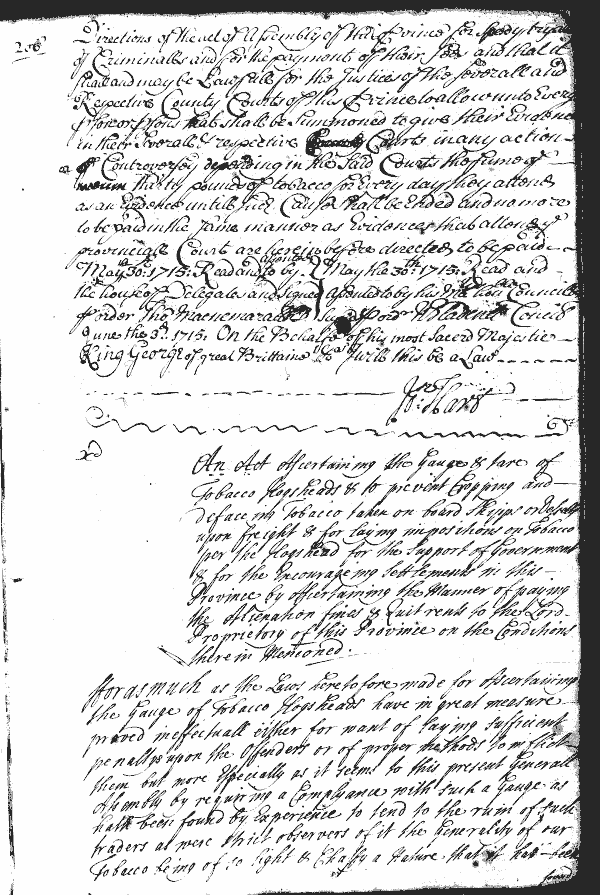 206
Directions of the act of Assembly of this Province for speedy tryal
of Criminalls and for the payment of their fees and that it
shall and may be Lawfull for the Justices of the severall and
Respective County Courts of this Province to allow unto Every
person or persons that shall be Summoned to give their Evidence
in their Severall & respective Courts in any action
of Controversy depending in the said Courts the sume of
thirty pounds of tobacco for every day they attend
as an Evidence untill such Cause shall be Ended and no more
to be paid in the same manner as Evidences that attend ye
provinciall Court are herein before directed to be paid
May 30th: 1715. Read and assented to by
the house of Delegates and signed
p order Tho Macnemara
May the 30th: 1715. Read and
Agreed to by his Councill
signed p ordr Wbladen Cl Councll
June the 3d. 1715. On the Behalfe of his most Sacred Majestie
King George of great Brittaine &ca I will this be a Law
Jo: Hart
An Act Ascertaining the Gauge & tare of
Tobacco Hogsheads & to prevent Cropping and
defaceing Tobacco taken on board Shipps or Vessells
upon freight & for laying impositions on Tobacco
per the Hogshead for the Support of Government
& for the Encourageing Settlements in this
Province by ascertaining the Manner of paying
the Alienation fines & Quit rents to the Lord
Proprietory of this Province on the Conditions
therein Mentioned.
fforasmuch as the Laws heretofore made for ascertaining
the Gauge of Tobacco Hogsheads have in great measure
proved ineffectuall either for want of laying sufficient
penaltys upon the Offenders or of proper methods to inflict
them but more Especially as it seems to this present Generall
Assembly by requiring a Complyance with such a Gauge as
hath been found by Experience to tend to the ruin of such
traders as were strict observers of it the Generality of our
Tobacco being of so light & Chaffy a Nature that it hath been
found